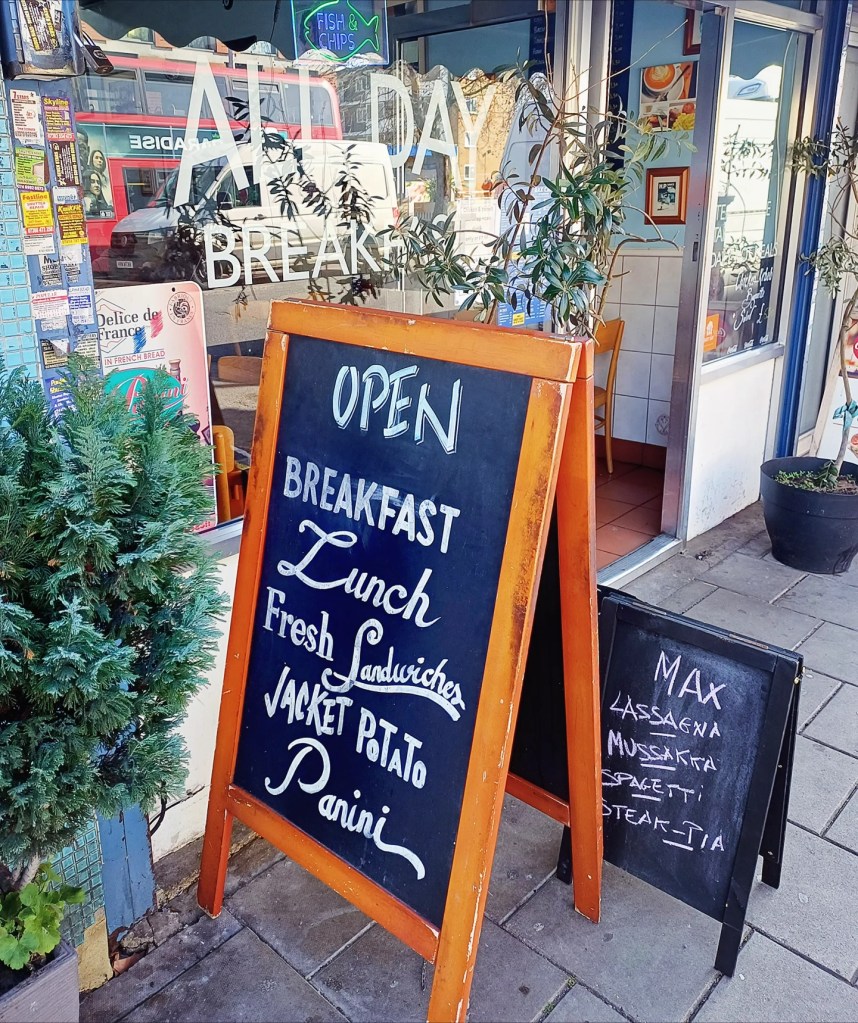 FISH &
CHIPS
ALL DAY
BREAKF
PARADISE
Skyline
Fastline
Delice de
France
IN FRENCH BREAD
OPEN
BREAKFAST
Lunch
Fresh Sandwiches
JACKET POTATO
Panini
MAX
LASSAGNA
MUSSAKKA
SPAGETTI
STEAK-PIA